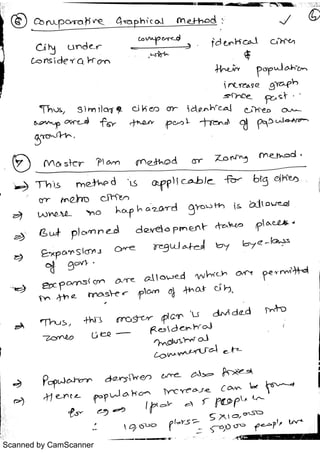 ⑥ Comparative Graphical method : ✓ 6
City under consideration compared with identical cities & their population increase graph since past.
Thus, similar cities or identical cities are compared for their past trend of population growth.
⑦ Master Plan method or Zoning method.
⇒ This method is applicable for big cities or metro cities
⇒ where no haphazard growth is allowed
⇒ But planned development takes places.
⇒ Expansions are regulated by bye-laws of govt.
⇒ Expansion are allowed which are permitted in the master plan of that city,
⇒ Thus, this master plan is divided into zones like — Residential
Industrial
Commercial etc
⇒ Population densities are also fixed
⇒ Hence population increase can be found
for eg ⇒ 1 plot of 5 people in
∴ 10,000 plots = 5 × 10,000
= 50,000 people live
Scanned by CamScanner